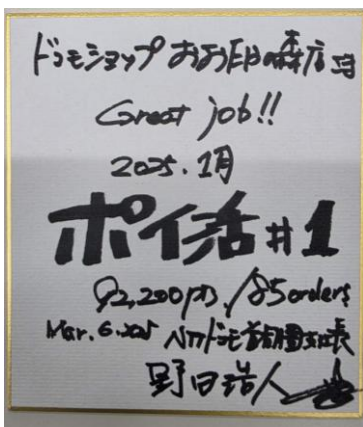 ドコモショップ おおたかの森店 様
Great job!!
2025.1月
ポイ活#1
92,200pt/85orders
Mar.6.2025 NTTドコモ首都圏支社長
野田浩人